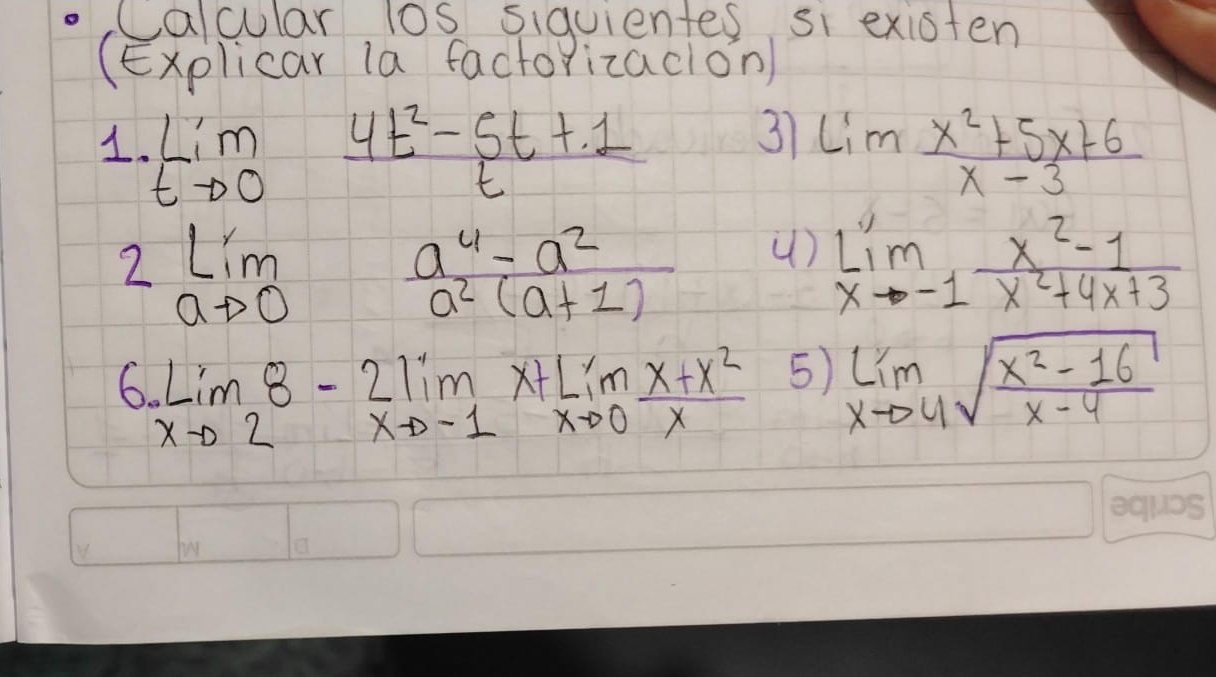 • Calcular los siguientes, si existen
(Explicar la factorización)
1. Lím t→0 (4t² - 5t + 1)/t
3) Lim (x² + 5x + 6)/(x - 3)
2 Lím a→0 (a⁴ - a²)/(a² (a + 1))
4) Lím x→-1 (x² - 1)/(x² + 4x + 3)
6. Lím x→2 8 - 2 lím x→-1 x + Lím x→0 (x + x²)/x
5) Lím x→4 √((x² - 16)/(x - 4))
Scribe
D M A